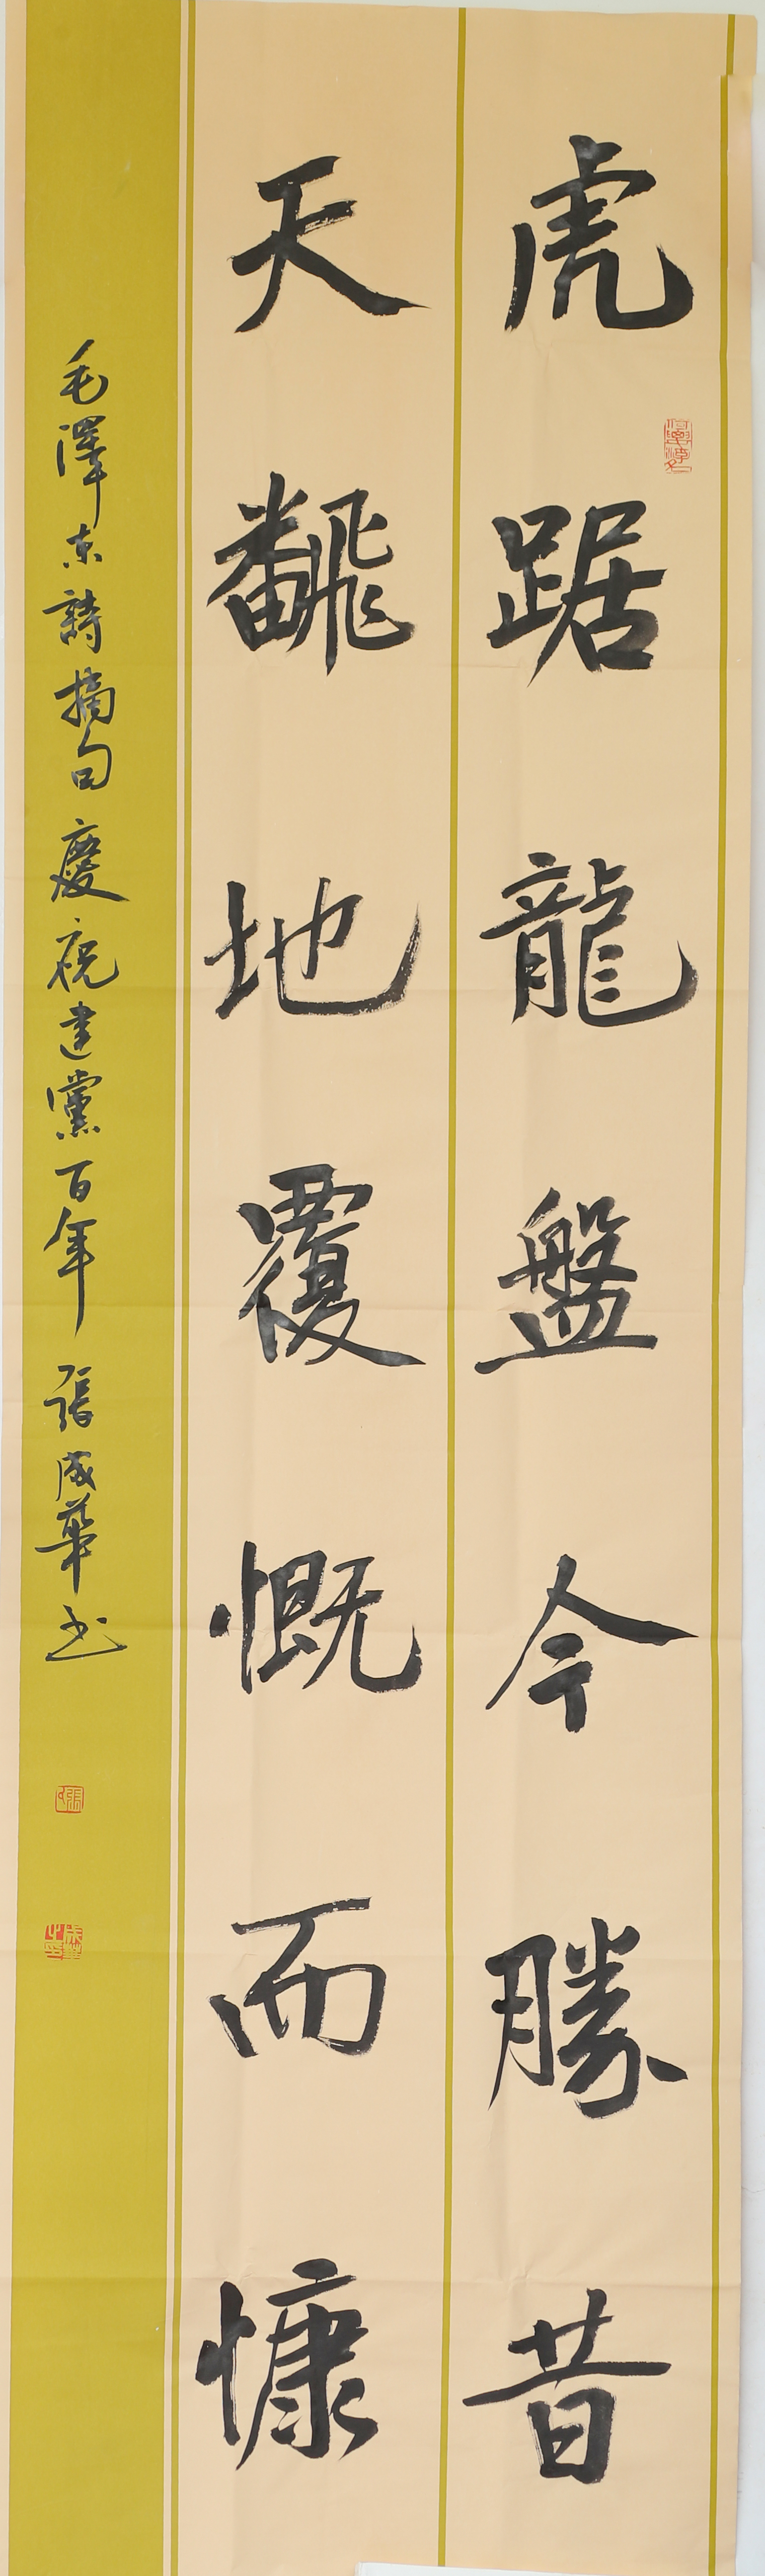 虎踞龍盤今勝昔
天飜地覆慨而慷
毛澤东詩摘句 慶祝建黨百年 張成華书